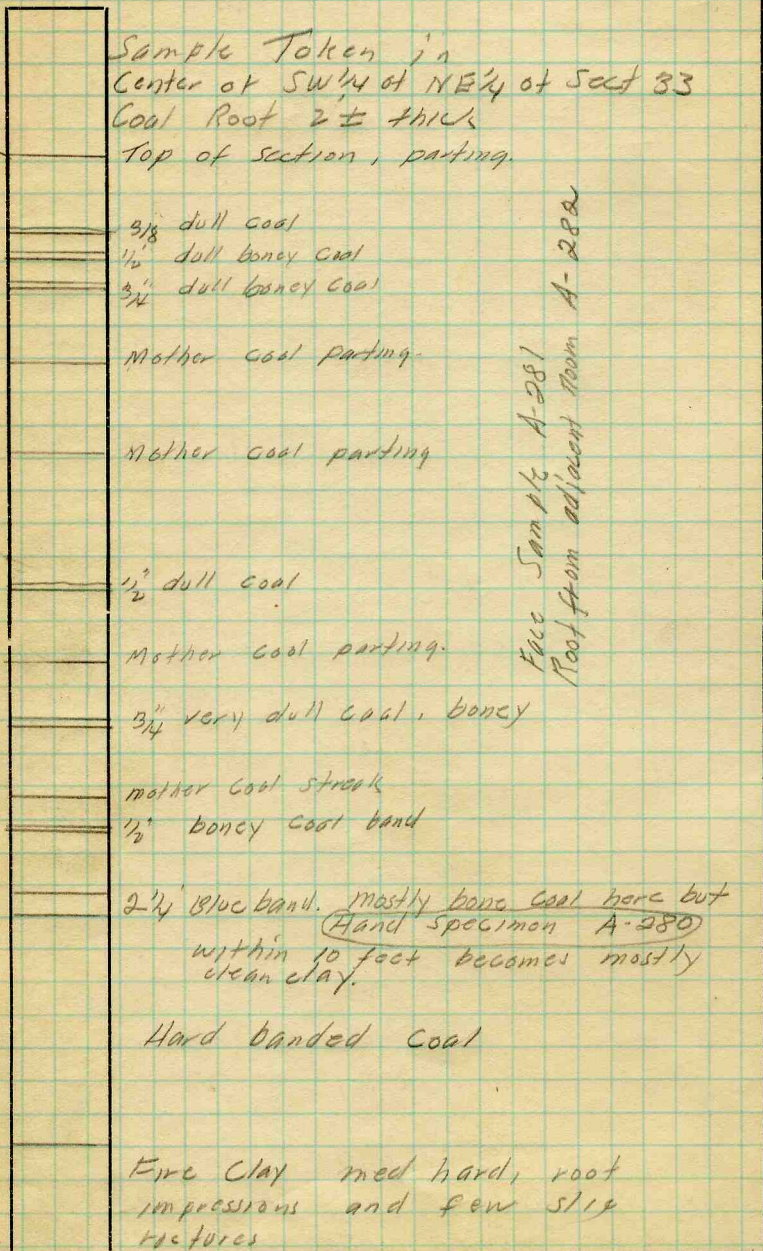 Sample Taken in
Center of SW¼ of NE¼ of Sect 33
Coal Roof 2'± thick
Top of section, parting.
3/8 dull coal
1/2" dull boney coal
3/4" dull boney coal
Mother coal parting.
Mother coal parting
1/2" dull coal
Mother coal parting.
3/4" very dull coal, boney
mother coal streak
1/2" boney coal band
2¼" Blue band. mostly bone coal here but
Hand Specimen A-280
within 10 feet becomes mostly
clean clay.
Hard banded coal
Fire Clay med hard, root
impressions and few slip
Face Sample A-281
Roof from adjacent Room A-282